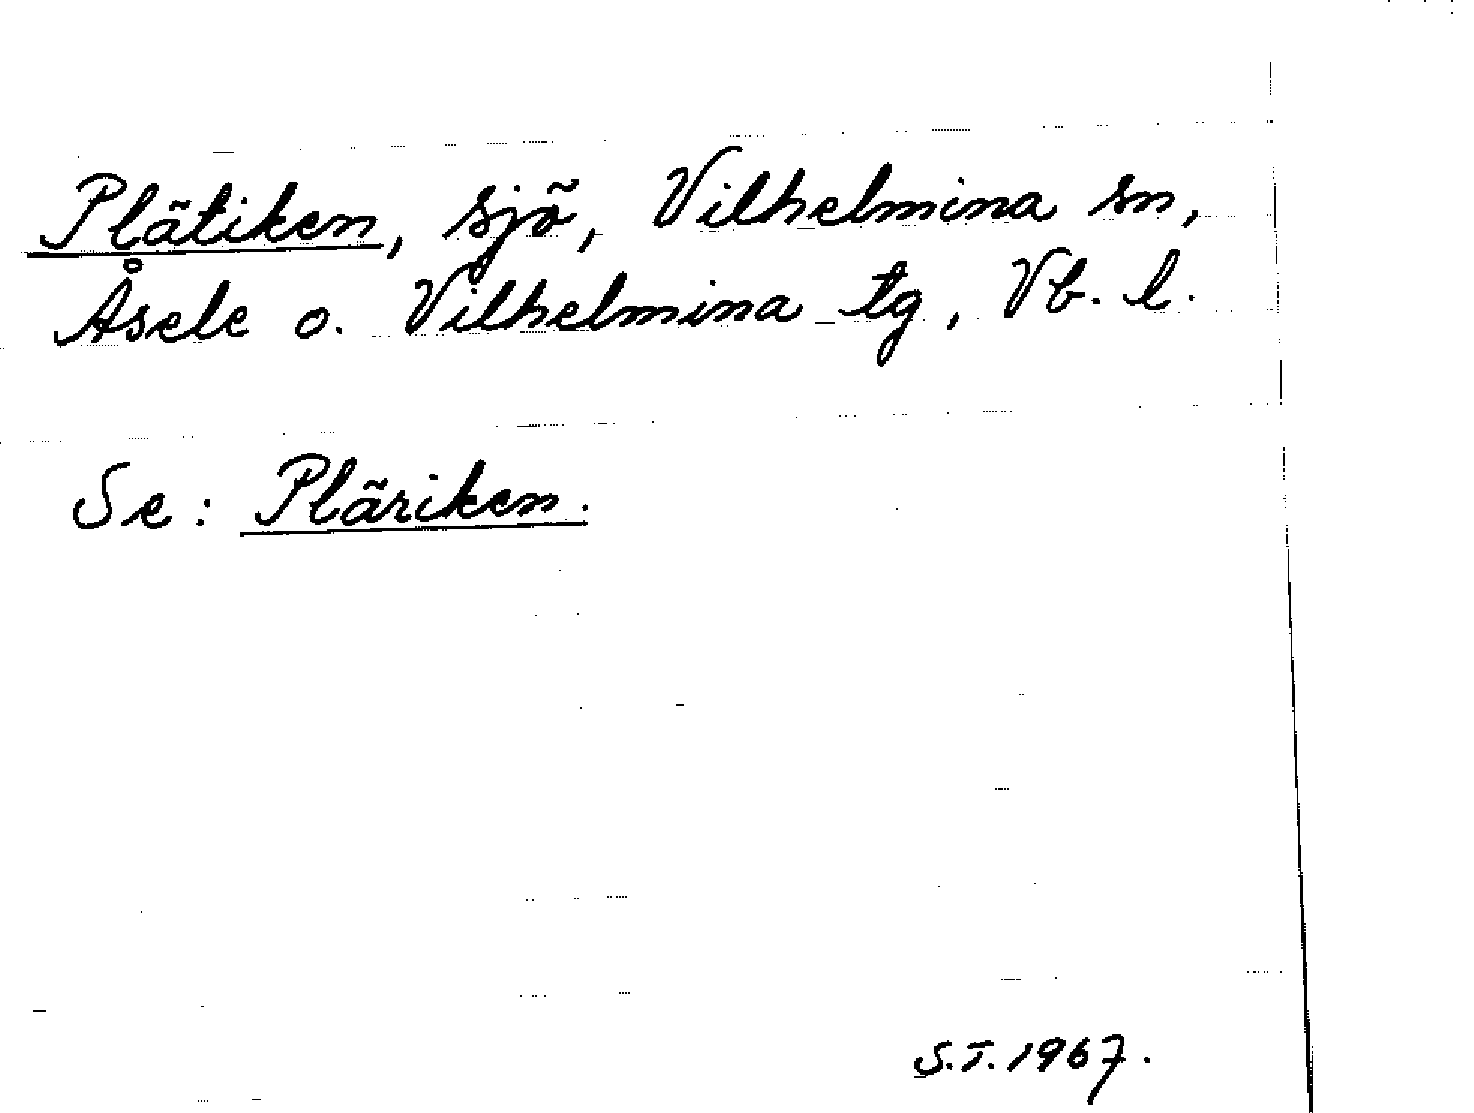 Plätiken, sjö, Vilhelmina sn,
Åsele o. Vilhelmina tg, Vb. l.
Se: Pläriken.
S.T. 1967.